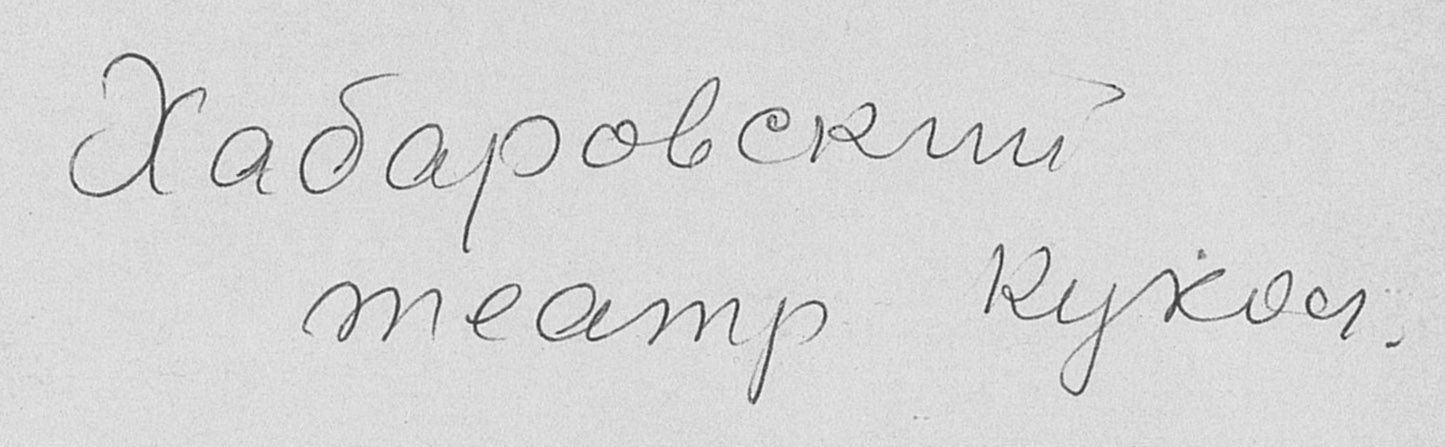 Хабаровский
театр кукол.